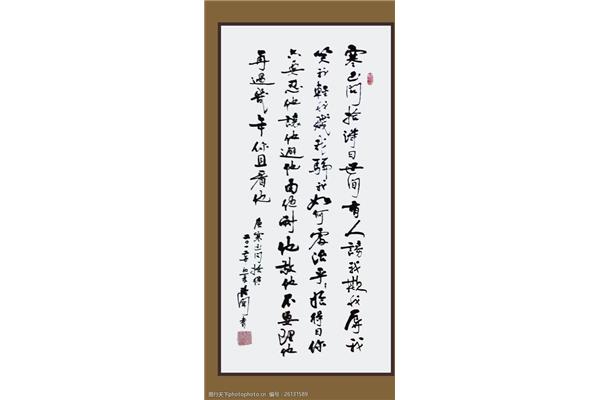 寒山问拾得曰世间有人谤我欺我辱我
笑我轻我贱我骗我如何处治乎拾得曰你
只要忍他让他避他由他耐他敬他不要理他
再过几年你且看他
唐寒山问拾得
图行天下photophoto.cn 编号:26131589